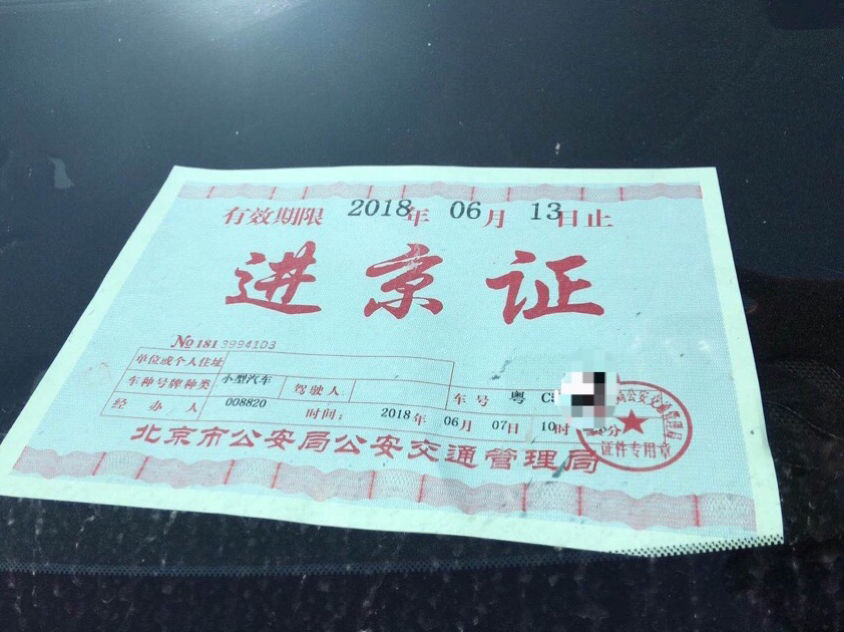 有效期限 2018年 06月 13日止
进京证
№ 181 3994103
单位或个人住址
车种号牌种类 小型汽车 驾驶人 车号 粤 C
经办人 008820 时间: 2018年 06月 07日 10时 分
北京市公安局公安交通管理局
证件专用章